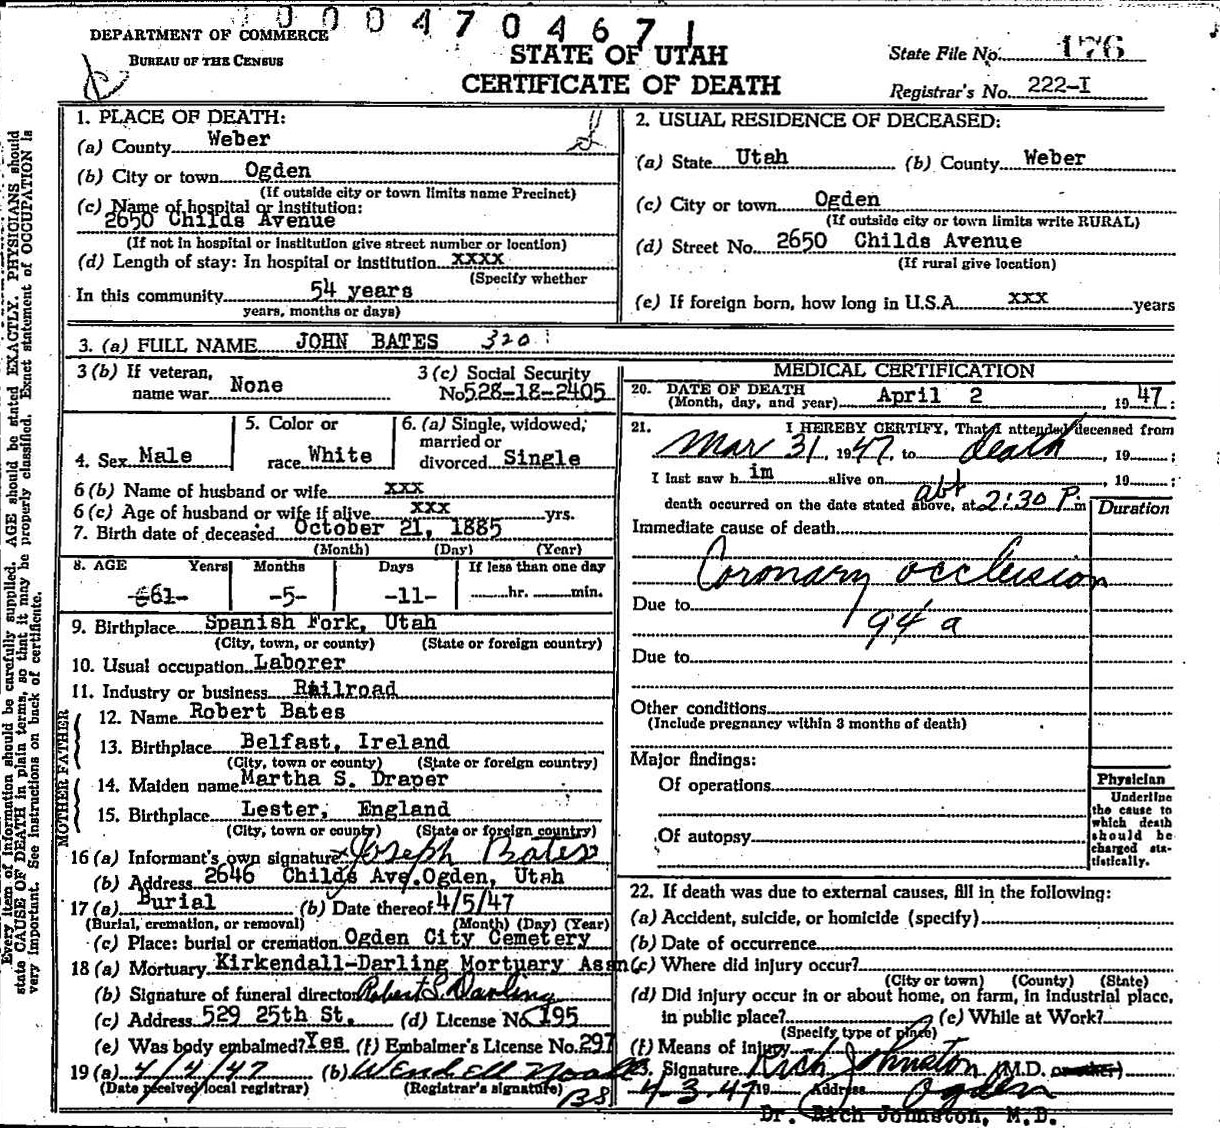 000470467 1
DEPARTMENT OF COMMERCE
BUREAU OF THE CENSUS
STATE OF UTAH
CERTIFICATE OF DEATH
State File No. 176
Registrar's No. 222-I
Every item of information should be carefully supplied. AGE should be stated EXACTLY. PHYSICIANS should
state CAUSE OF DEATH in plain terms, so that it may be properly classified. Exact statement of OCCUPATION is
very important. See instructions on back of certificate.
1. PLACE OF DEATH:
(a) County Weber
(b) City or town Ogden
(If outside city or town limits name Precinct)
(c) Name of hospital or institution:
2650 Childs Avenue
(If not in hospital or institution give street number or location)
(d) Length of stay: In hospital or institution xxxx
(Specify whether
In this community 54 years
years, months or days)
2. USUAL RESIDENCE OF DECEASED:
(a) State Utah (b) County Weber
(c) City or town Ogden
(If outside city or town limits write RURAL)
(d) Street No. 2650 Childs Avenue
(If rural give location)
(e) If foreign born, how long in U.S.A. xxx years
3. (a) FULL NAME JOHN BATES 320
3 (b) If veteran, name war None
3 (c) Social Security No. 528-18-2405
4. Sex Male
5. Color or race White
6. (a) Single, widowed, married or divorced Single
6 (b) Name of husband or wife xxx
6 (c) Age of husband or wife if alive xxx yrs.
7. Birth date of deceased October 21, 1885
(Month) (Day) (Year)
8. AGE Years Months Days If less than one day
61- -5- -11- hr. min.
9. Birthplace Spanish Fork, Utah
(City, town, or county) (State or foreign country)
10. Usual occupation Laborer
11. Industry or business Railroad
FATHER
12. Name Robert Bates
13. Birthplace Belfast, Ireland
(City, town or county) (State or foreign country)
MOTHER
14. Maiden name Martha S. Draper
15. Birthplace Lester, England
(City, town or county) (State or foreign country)
16 (a) Informant's own signature x Joseph Bates
(b) Address 2646 Childs Ave. Ogden, Utah
17 (a) Burial (b) Date thereof 4/5/47
(Burial, cremation, or removal) (Month) (Day) (Year)
(c) Place: burial or cremation Ogden City Cemetery
18 (a) Mortuary Kirkendall-Darling Mortuary Assn
(b) Signature of funeral director Robert S. Darling
(c) Address 529 25th St. (d) License No. 195
(e) Was body embalmed? Yes (f) Embalmer's License No. 297
19 (a) 4/4/47 (b) Wendell
(Date received local registrar) (Registrar's signature)
BB
MEDICAL CERTIFICATION
20. DATE OF DEATH
(Month, day, and year) April 2, 1947:
21. I HEREBY CERTIFY, That I attended deceased from
Mar 31, 1947, to death, 19 ;
I last saw h im alive on , 19 ;
death occurred on the date stated above, at abt 2:30 P. m
Duration
Immediate cause of death
Coronary occlusion
Due to 94 a
Due to
Other conditions
(Include pregnancy within 3 months of death)
Major findings:
Of operations
Of autopsy
Physician
Underline
the cause to
which death
should be
charged sta-
tistically.
22. If death was due to external causes, fill in the following:
(a) Accident, suicide, or homicide (specify)
(b) Date of occurrence
(c) Where did injury occur?
(City or town) (County) (State)
(d) Did injury occur in or about home, on farm, in industrial place,
in public place? (e) While at Work?
(Specify type of place)
(f) Means of injury
23. Signature Rich Johnston (M.D. or other)
4-3-47 19 Address Ogden
Dr. Rich Johnston, M.D.